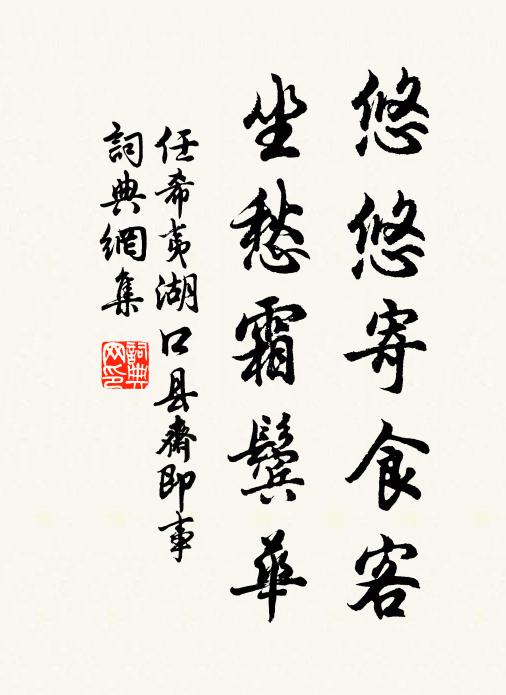 悠悠寄食客
坐愁霜鬓華
任希夷湖口县齋即事
詞典網集
詞典网印